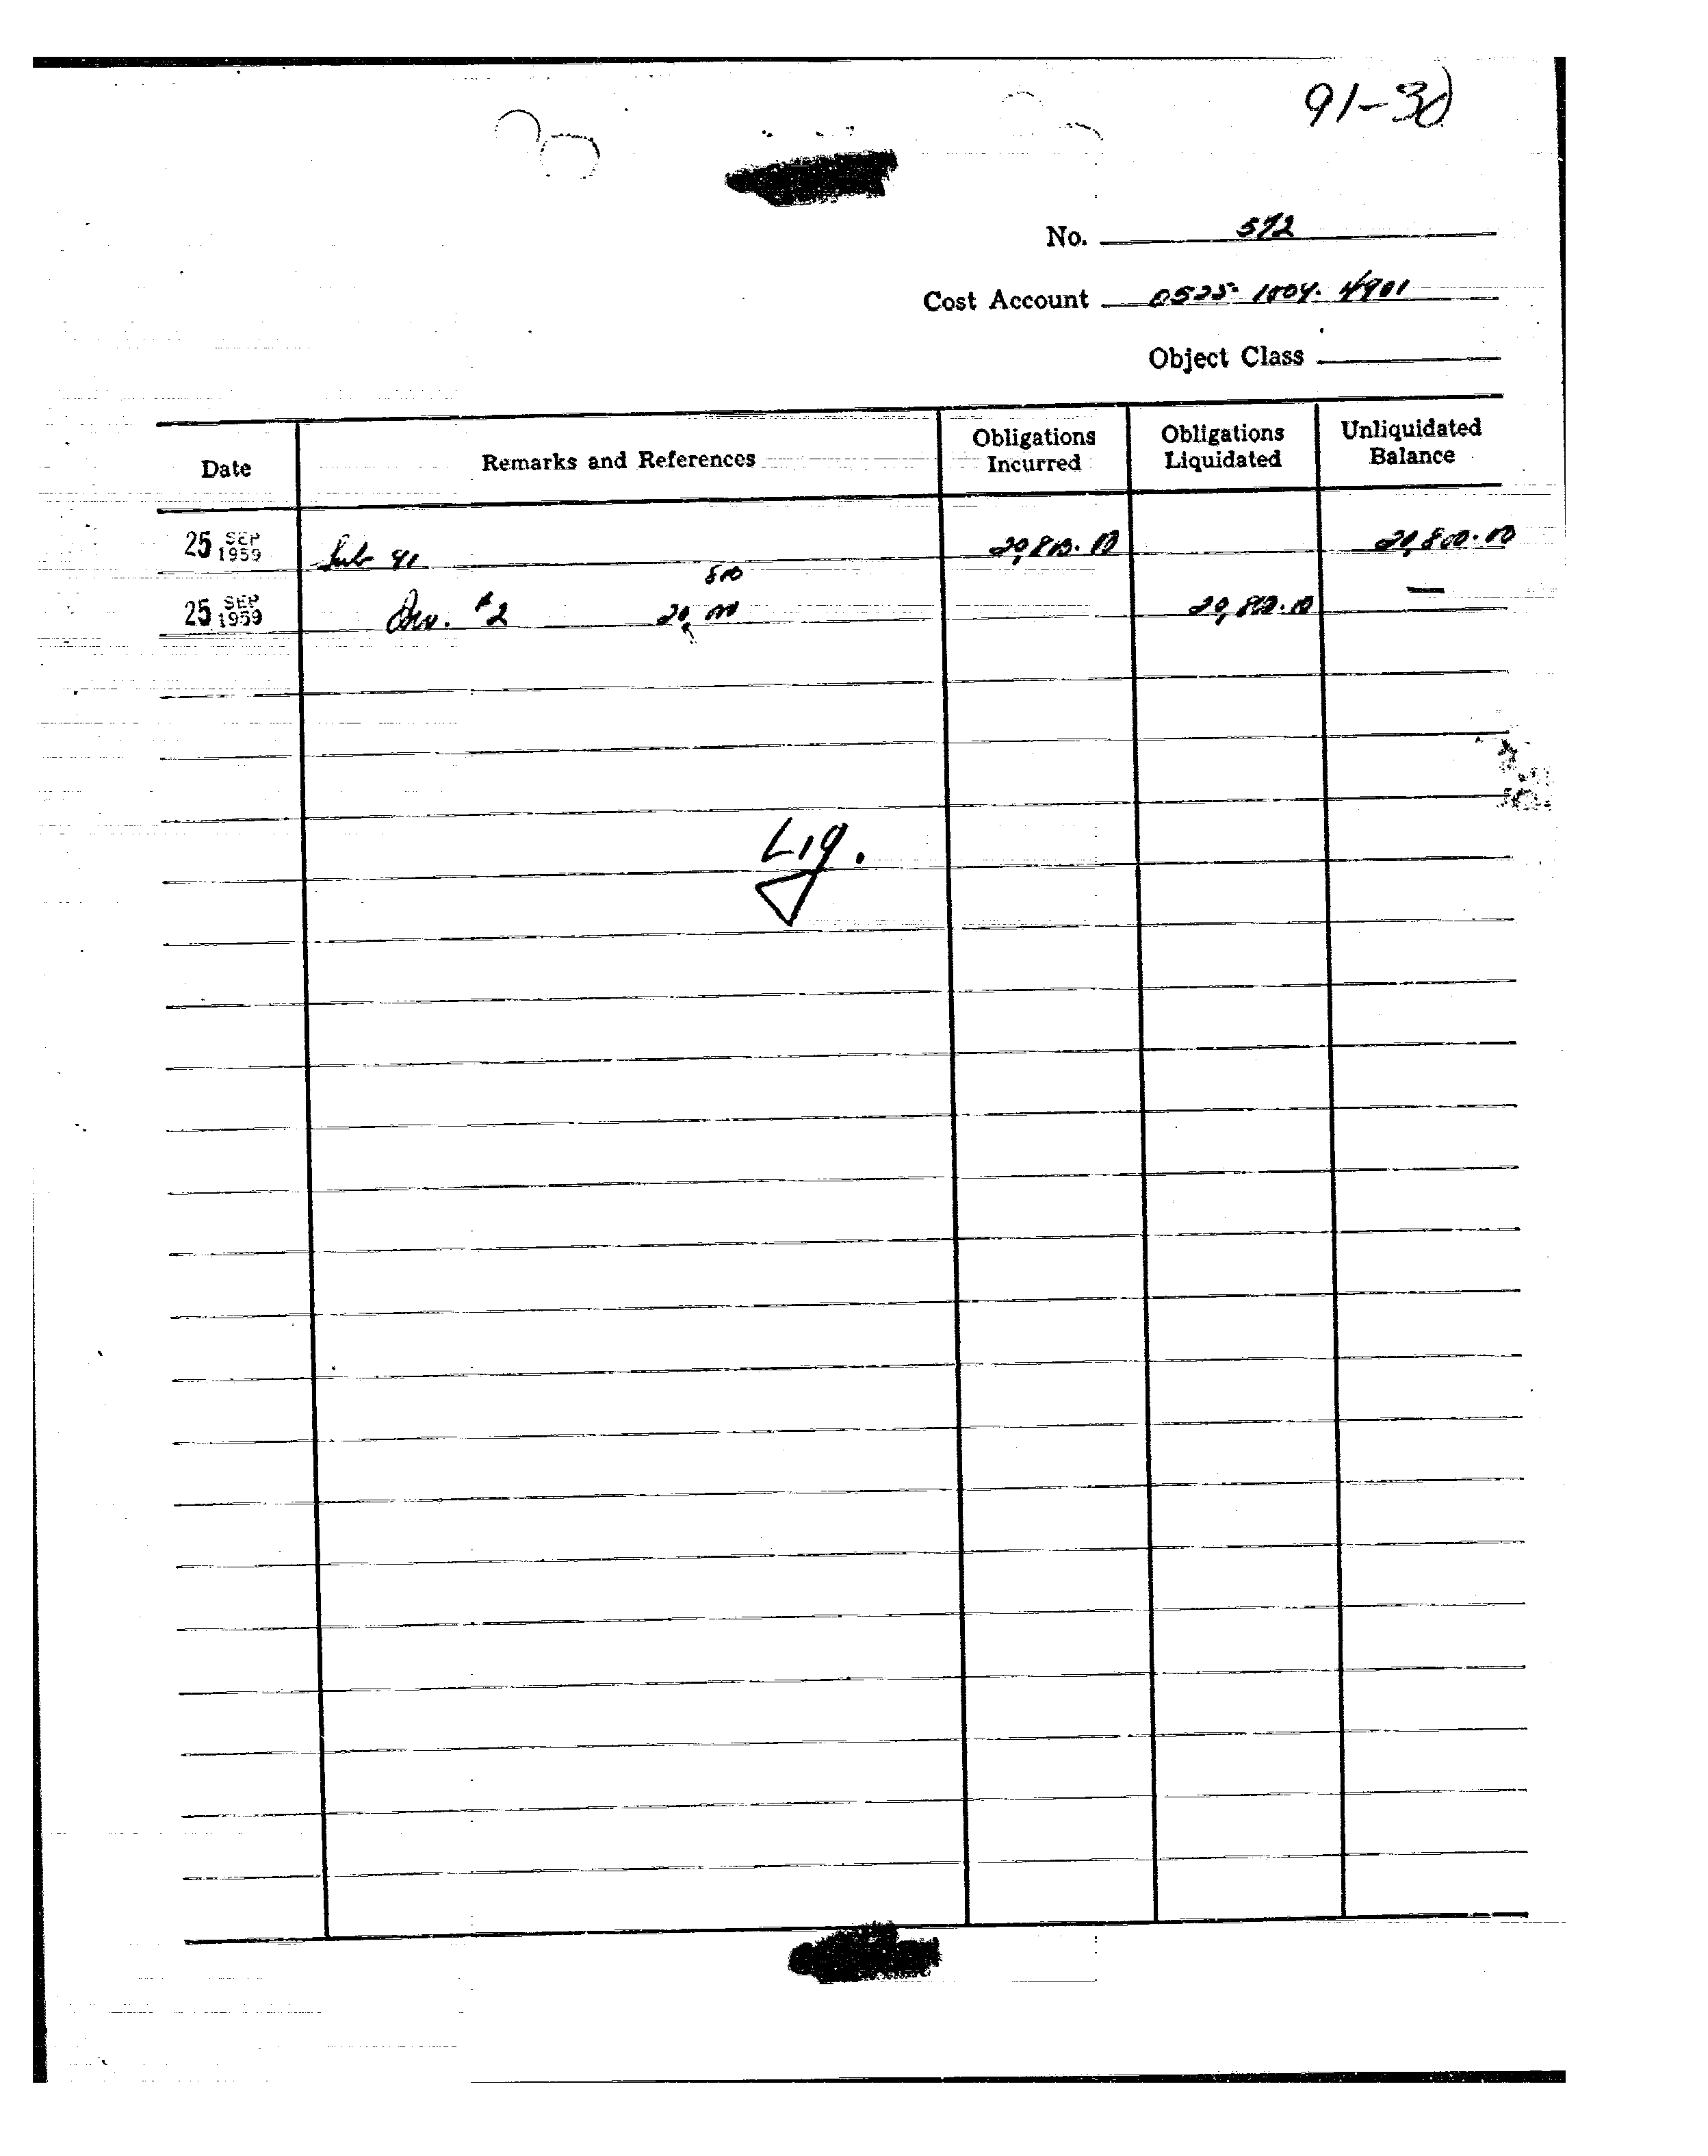 91-30
No. 572
Cost Account 0525-1004-4901
Object Class
Date Remarks and References Obligations Incurred Obligations Liquidated Unliquidated Balance
25 SEP 1959 Sub 91 20,800.00 20,800.00
800
25 SEP 1959 Inv. #2 20,000 20,800.00 —
Liq.